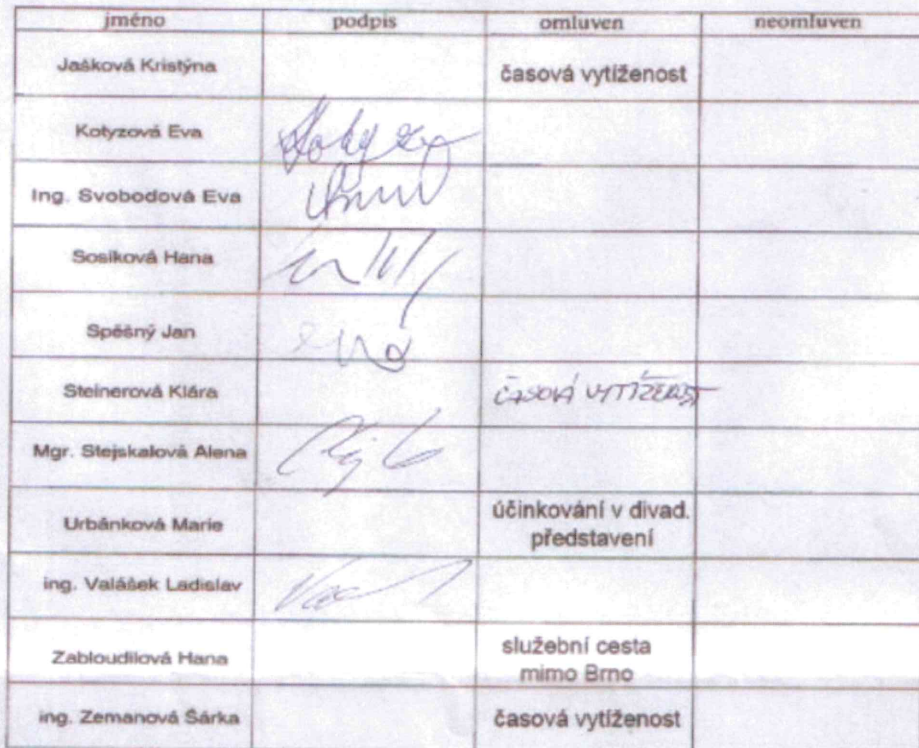 jméno podpis omluven neomluven
Jašková Kristýna časová vytíženost
Kotyzová Eva
Ing. Svobodová Eva
Sosíková Hana
Spěšný Jan
Steinerová Klára ČASOVÁ VYTÍŽENOST
Mgr. Stejskalová Alena
Urbánková Marie účinkování v divad.
představení
ing. Valášek Ladislav
Zabloudilová Hana služební cesta
mimo Brno
ing. Zemanová Šárka časová vytíženost